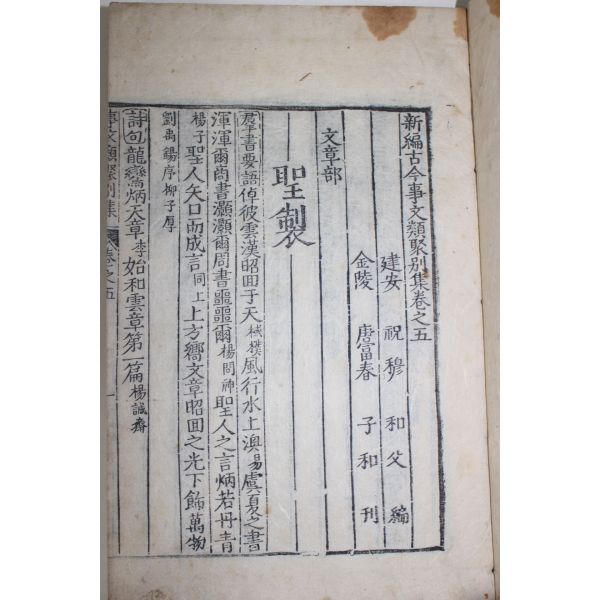 新編古今事文類聚別集卷之五
建安 祝穆 和父 編
金陵 唐富春 子和 刊
文章部
聖製
羣書要語倬彼雲漢昭囬于天棫樸風行水上渙易虞夏之書
渾渾爾商書灝灝爾周書噩噩爾楊問神聖人之言炳若丹青
楊子聖人矢口而成言同上上方嚮文章昭囬之光下飾萬物
劉禹錫序柳子厚
詩句龍鸞炳天章李如和雲章第一篇楊誠齋
事文類聚別集 卷之五 一